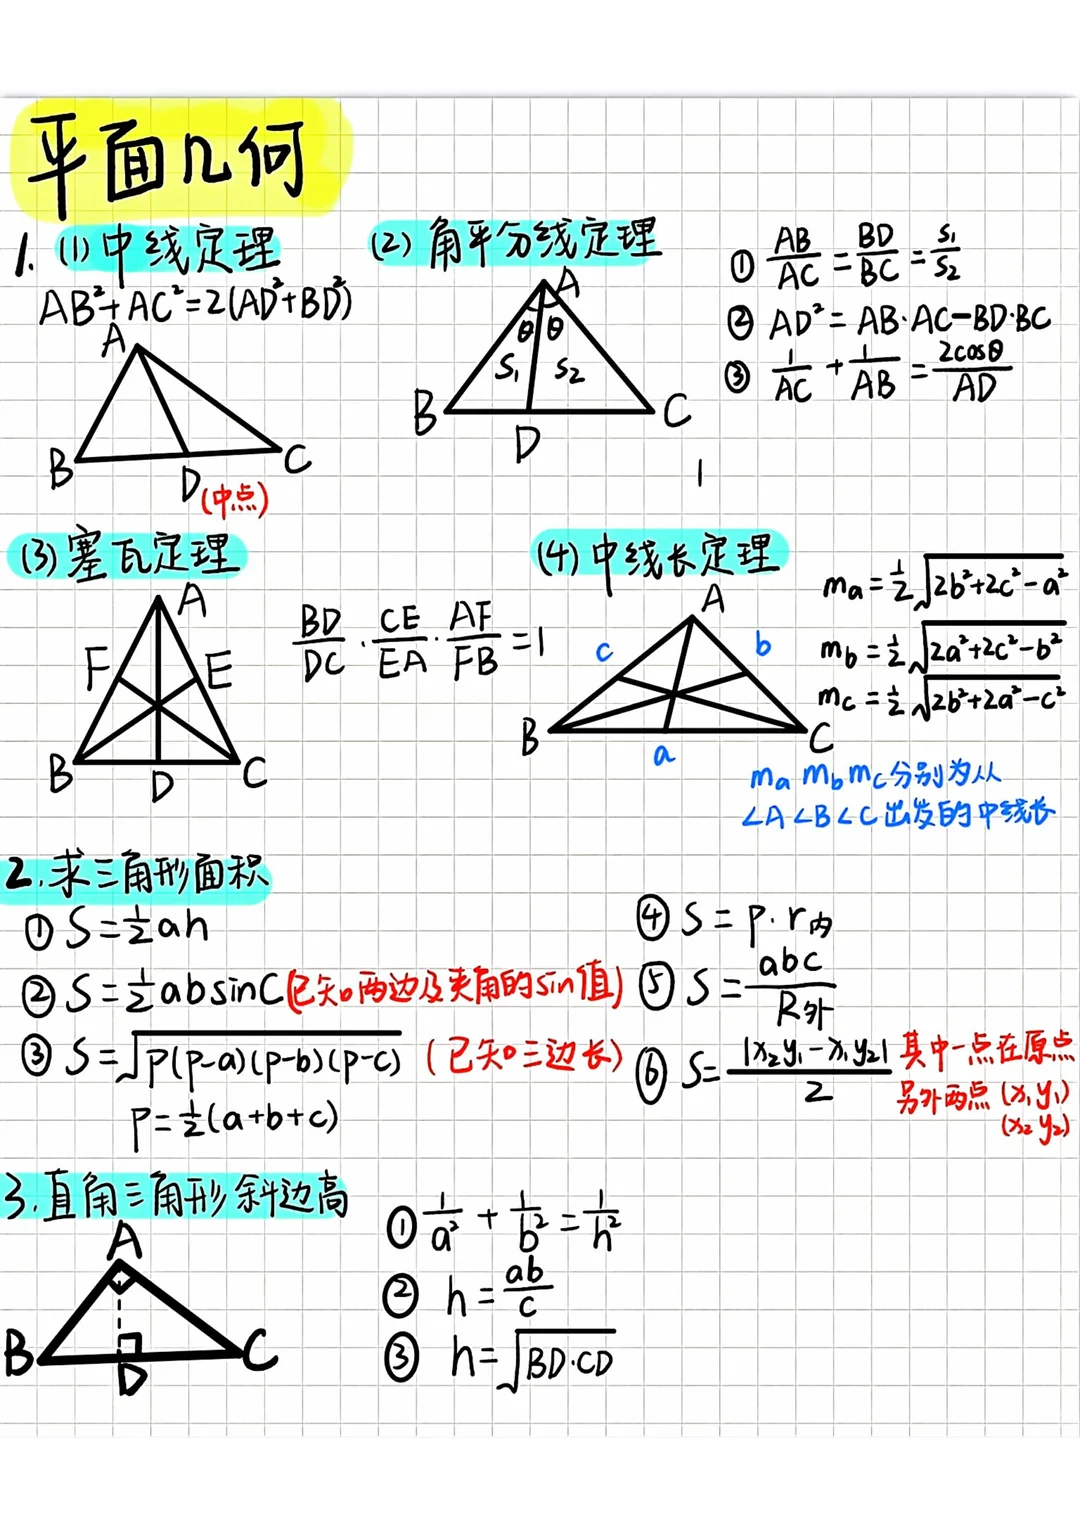 平面几何
1. (1) 中线定理
AB²+AC²=2(AD²+BD²)
A
B
D
C
(中点)
(2) 角平分线定理
A
θ θ
S₁ S₂
B
D
C
① AB/AC = BD/BC = S₁/S₂
② AD² = AB·AC-BD·BC
③ 1/AC + 1/AB = 2cosθ/AD
(3) 塞瓦定理
A
F
E
B
D
C
BD/DC · CE/EA · AF/FB = 1
(4) 中线长定理
A
c
b
B
a
C
mₐ = ½√(2b²+2c²-a²)
m_b = ½√(2a²+2c²-b²)
m_c = ½√(2b²+2a²-c²)
mₐ m_b m_c 分别为从
∠A ∠B ∠C 出发的中线长
2. 求三角形面积
① S=½ah
② S=½absinC (已知两边及夹角的sin值)
③ S=√(p(p-a)(p-b)(p-c)) (已知三边长)
p=½(a+b+c)
④ S = p·r内
⑤ S = abc/R外
⑥ S= |x₂y₁-x₁y₂|/2 其中一点在原点
另外两点 (x₁y₁)
(x₂y₂)
3. 直角三角形斜边高
A
B
D
C
① 1/a² + 1/b² = 1/h²
② h = ab/c
③ h=√(BD·CD)